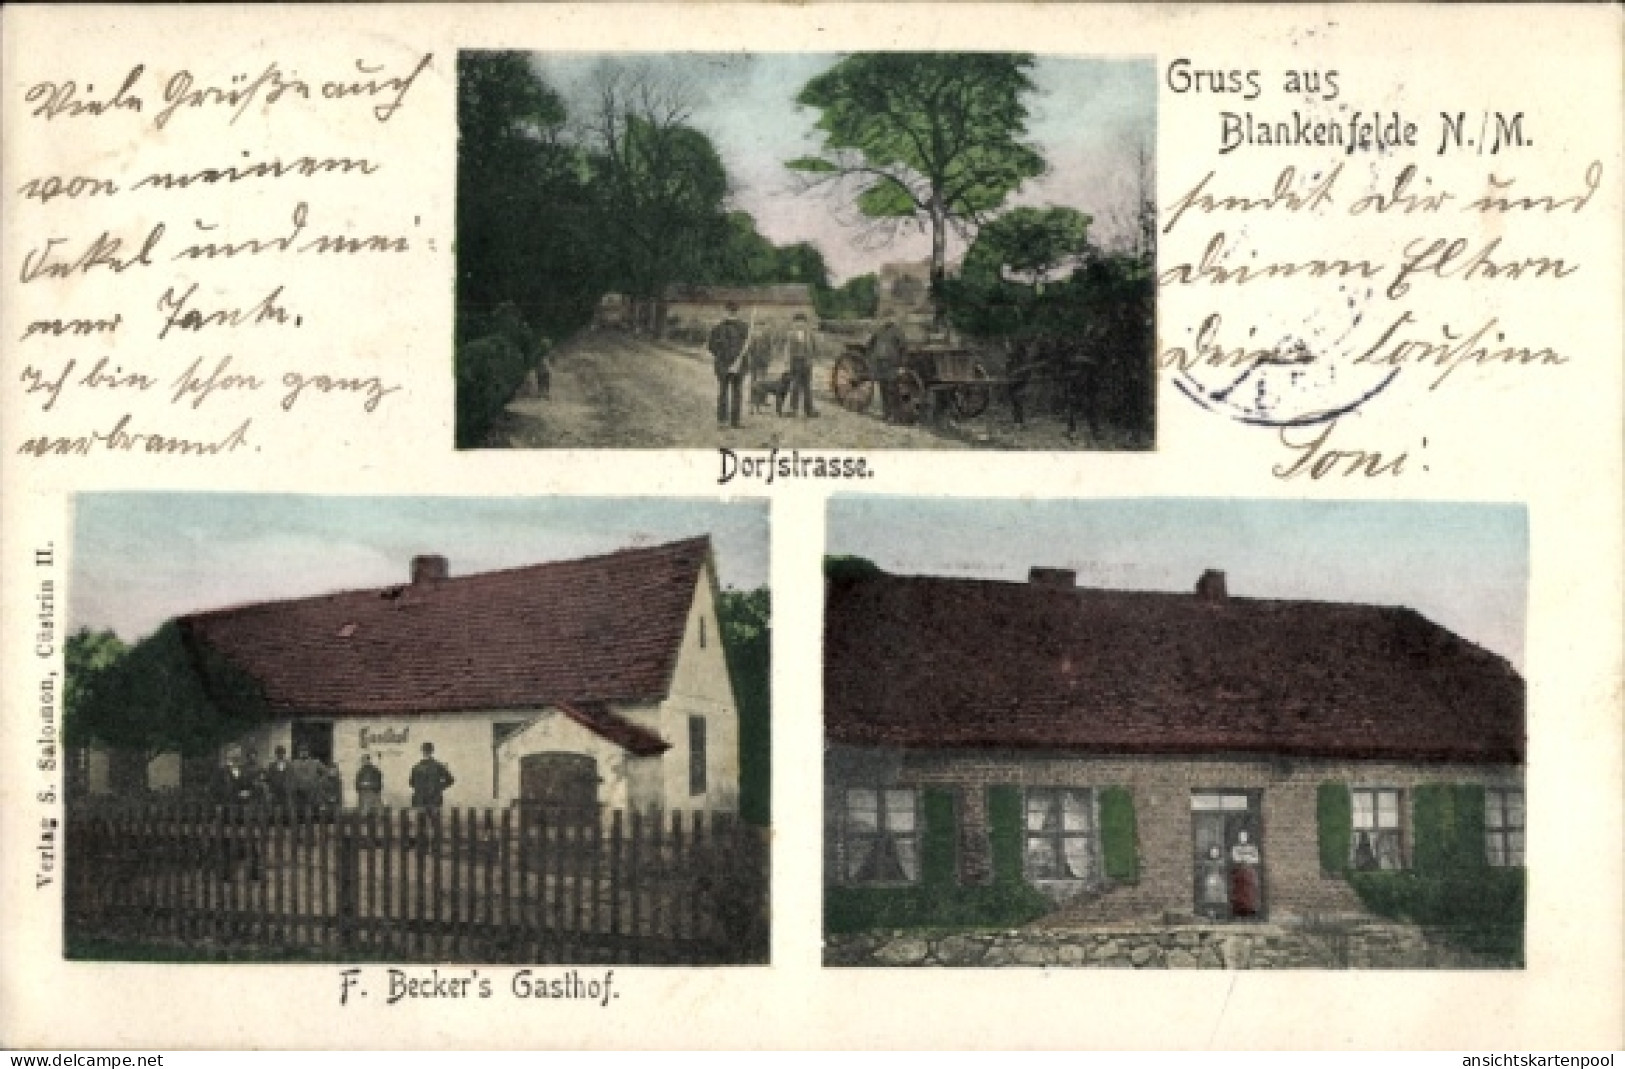 Gruss aus
Blankenfelde N./M.
sendet Dir und
Deinen Eltern
Deine Cousine
Toni.
Viele Grüße auch
von meinem
Onkel und mei-
ner Tante.
Ich bin schon ganz
verbrannt.
Dorfstrasse.
Gasthof
F. Becker's Gasthof.
Verlag S. Salomon, Cüstrin II.
www.delcampe.net
ansichtskartenpool